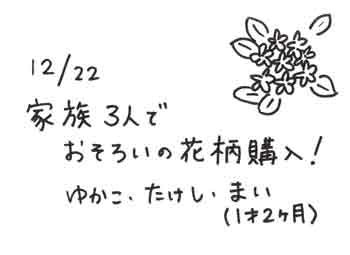 12/22
家族3人で
おそろいの花柄購入!
ゆかこ、たけし、まい
(1才2ヶ月)